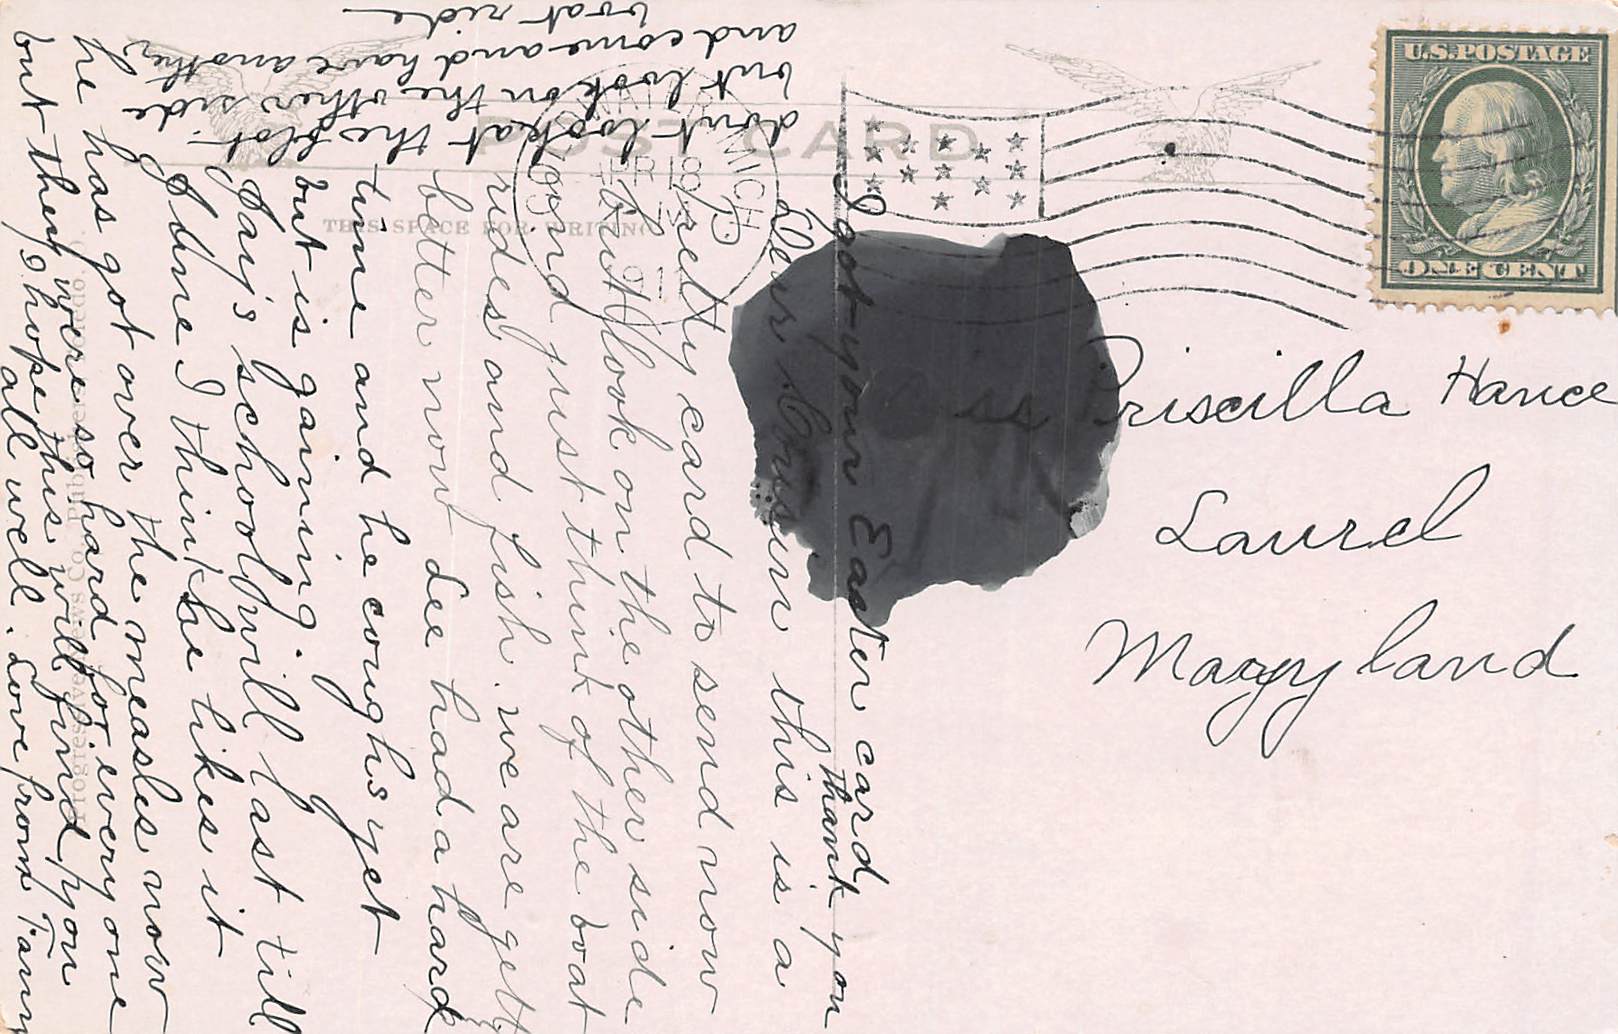 POST CARD
THIS SPACE FOR WRITING
U.S. POSTAGE
ONE CENT
MICH.
APR 18
Priscilla Hance
Laurel
Maryland
I got your Easter card
thank you
Dear Cousin this is a
pretty card to send now
but look on the other side
and just think of the boat
rides and fish we are gett
better now Lee had a hard
time and he coughs yet
but is gaining.
Jay's school will last till
June I think he likes it
he has got over the measles now
but they were so hard for every one
I hope this will find you
all well. Love from
don't look at the blot.
but look on the other side
and come and have another
boat ride
Progressive News Co., Publishers, Toledo, O.